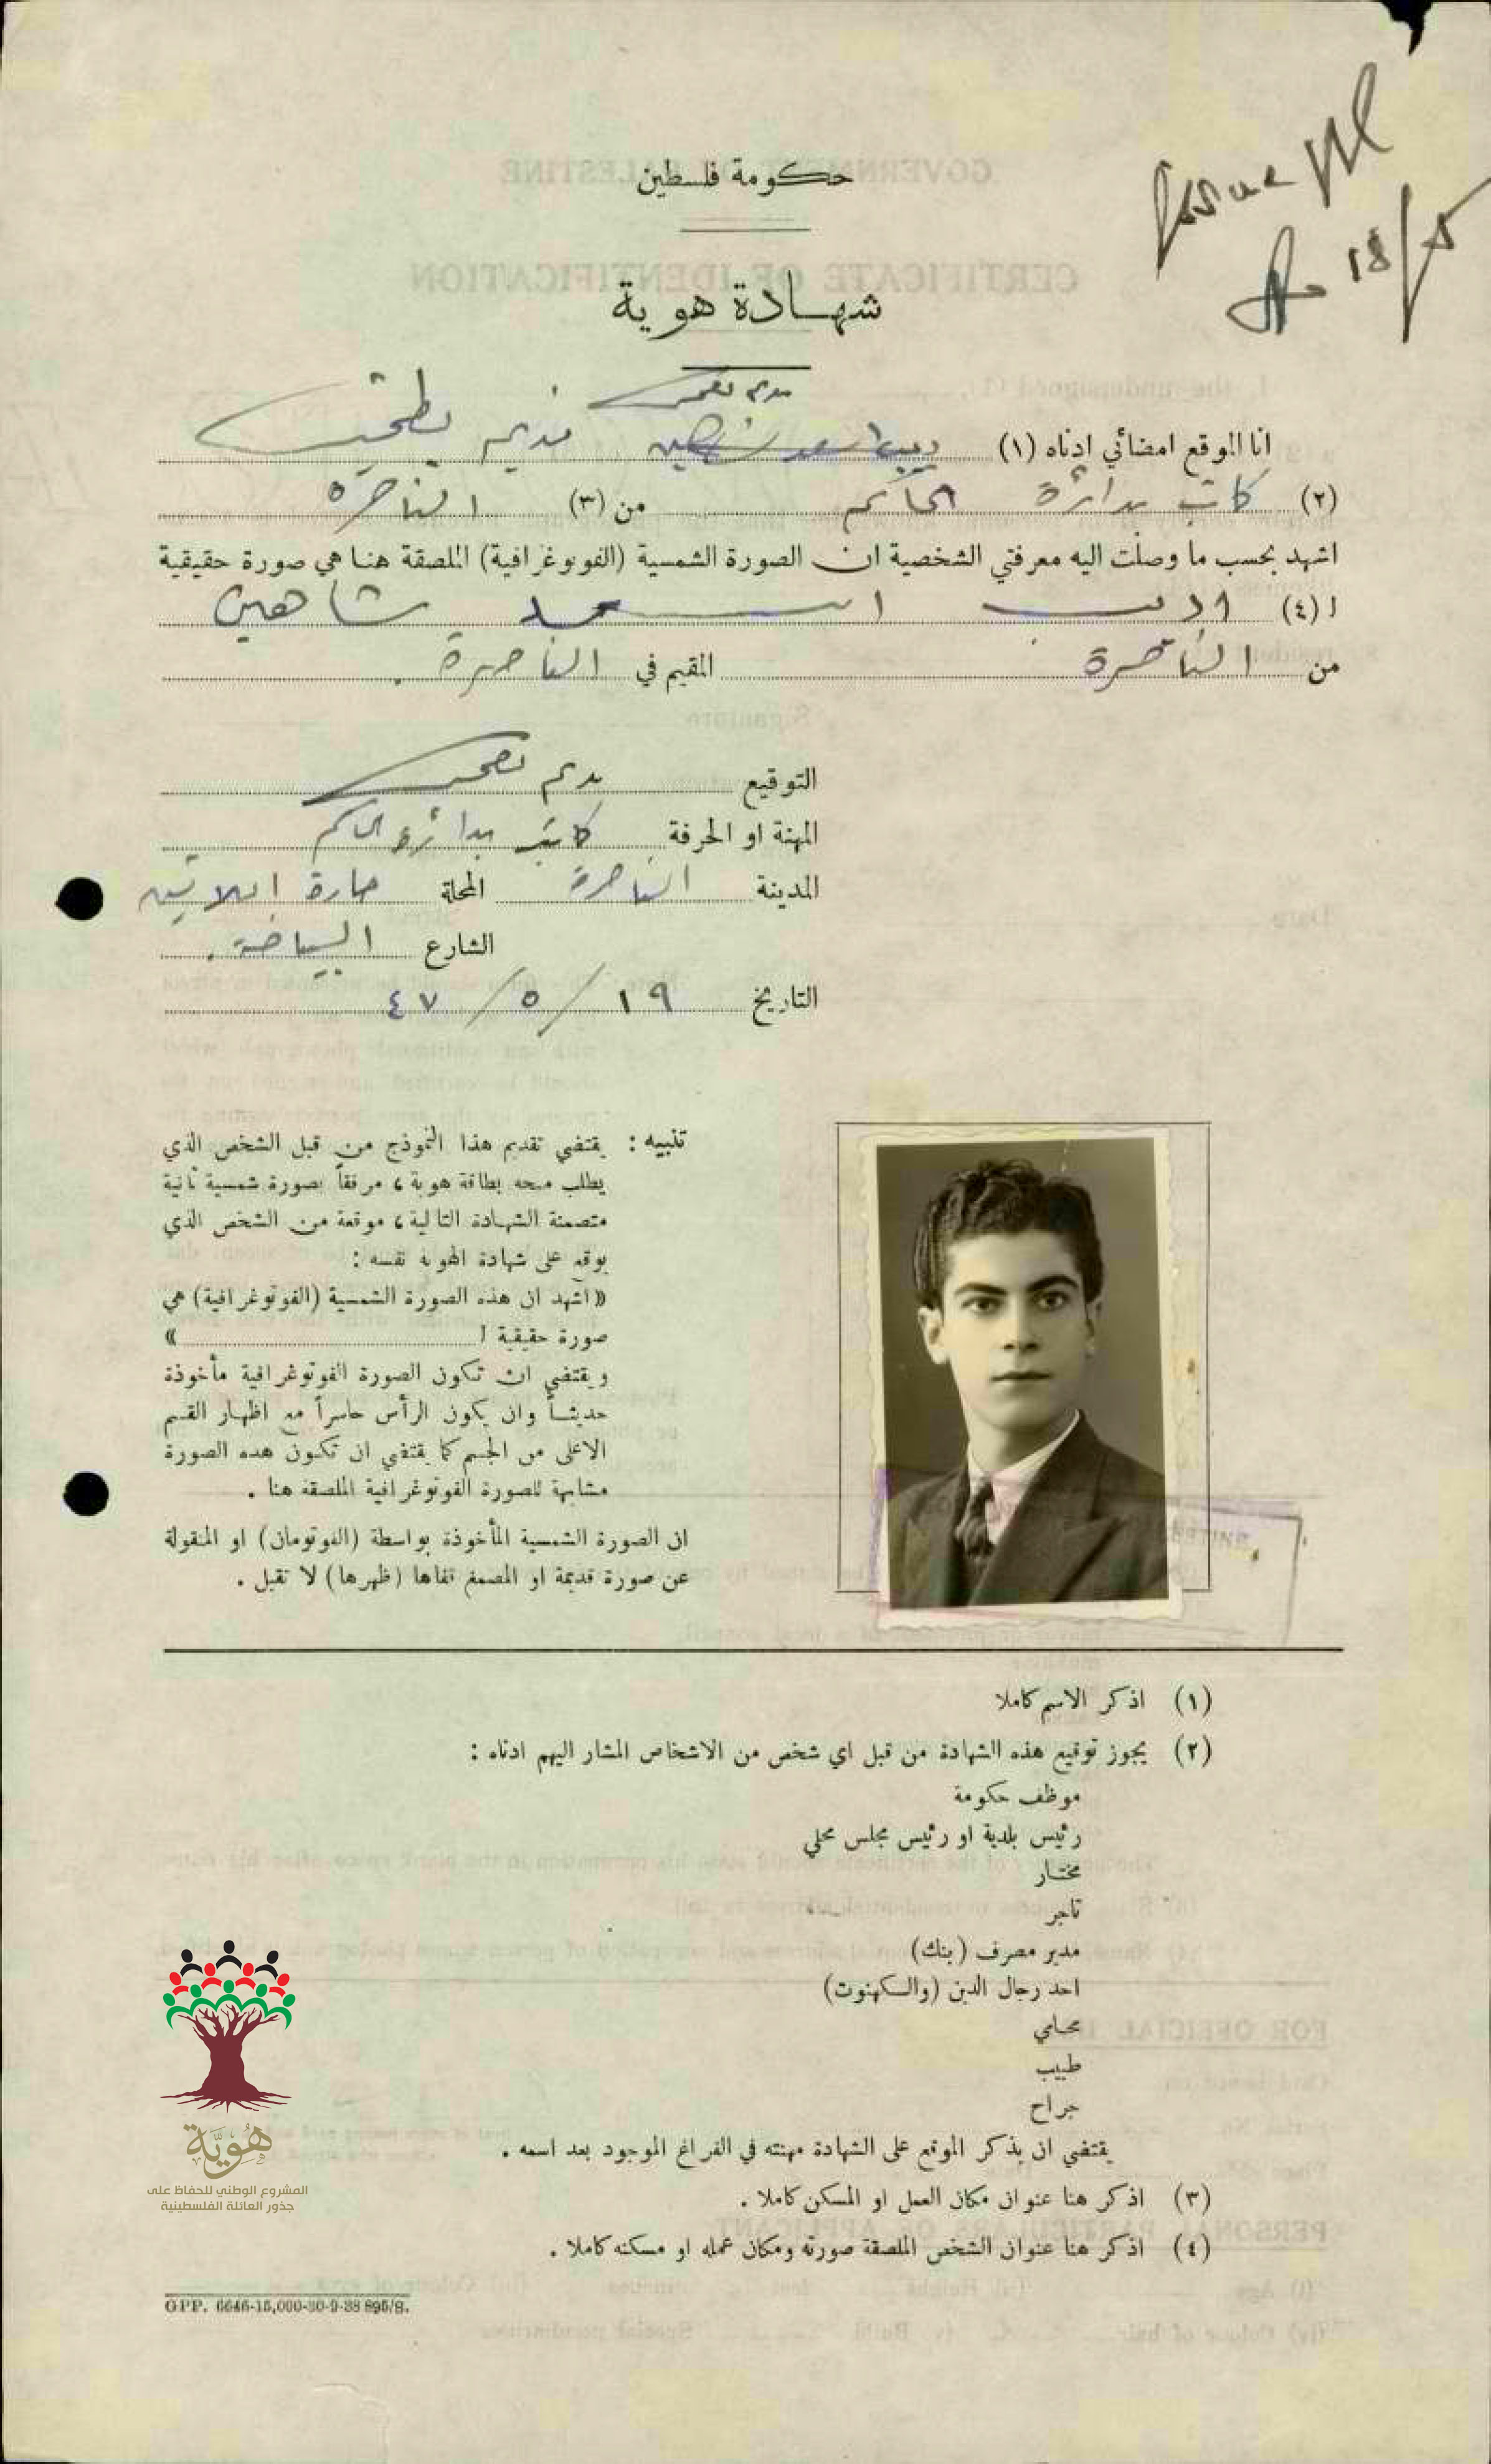 حكومة فلسطين
شهادة هوية
انا الموقع امضائي ادناه (١) نديم بطحيش
(٢) كاتب بدائرة الحاكم من (٣) الناصرة
اشهد بحسب ما وصلت اليه معرفتي الشخصية ان الصورة الشمسية (الفوتوغرافية) الملصقة هنا هي صورة حقيقية
ا (٤) اديب اسعد شاهين
من الناصرة المقيم في الناصرة .
التوقيع
المهنة او الحرفة كاتب بدائرة الحاكم
المدينة الناصرة المحلة حارة اللاتين
الشارع
التاريخ ١٩/٥/٤٧
18/5
تنبيه : يقتضي تقديم هذا النموذج من قبل الشخص الذي
يطلب منحه بطاقة هوية ، مرفقاً بصورة شمسية ثانية
متضمنة الشهادة التالية ، موقعة من الشخص الذي
يوقع على شهادة الهوية نفسه :
«اشهد ان هذه الصورة الشمسية (الفوتوغرافية) هي
صورة حقيقية ا »
ويقتضي ان تكون الصورة الفوتوغرافية مأخوذة
حديثاً وان يكون الرأس حاسراً مع اظهار القسم
الاعلى من الجسم كما يقتضي ان تكون هذه الصورة
مشابهة للصورة الفوتوغرافية الملصقة هنا .
ان الصورة الشمسية المأخوذة بواسطة (الفوتومان) او المنقولة
عن صورة قديمة او المصمغ قفاها (ظهرها) لا تقبل .
(١) اذكر الاسم كاملا
(٢) يجوز توقيع هذه الشهادة من قبل اي شخص من الاشخاص المشار اليهم ادناه :
موظف حكومة
رئيس بلدية او رئيس مجلس محلي
مختار
تاجر
مدير مصرف (بنك)
احد رجال الدين (والكهنوت)
محامي
طبيب
جراح
يقتضي ان يذكر الموقع على الشهادة مهنته في الفراغ الموجود بعد اسمه .
(٣) اذكر هنا عنوان مكان العمل او المسكن كاملا .
(٤) اذكر هنا عنوان الشخص الملصقة صورته ومكان عمله او مسكنه كاملا .
GPP. 6646-15,000-30-9-38 895/S.
هُوِيَّة
المشروع الوطني للحفاظ على
جذور العائلة الفلسطينية